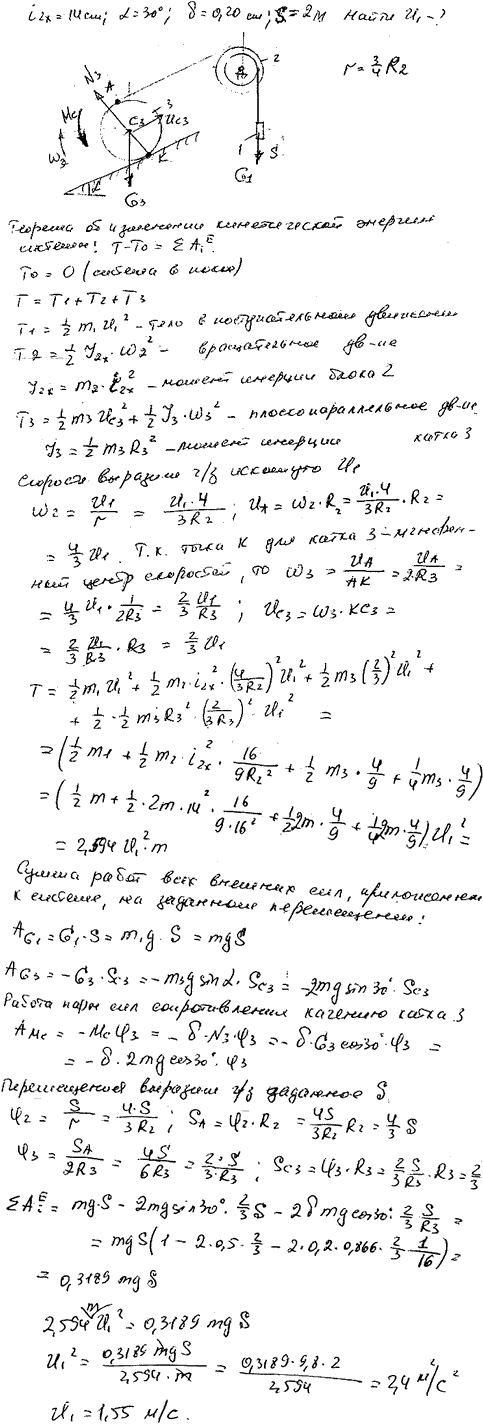 i₂ₓ = 14 см; α = 30°; δ = 0,20 см; S = 2 м Найти U₁ - ?
r = 3/4 R₂
N₃ A 3 U_C3 M_c C₃ ω₃ K α G₃ 2 1 S G₁
Теорема об изменении кинетической энергии
системы! T - T₀ = Σ A_i^E.
T₀ = 0 (система в покое)
T = T₁ + T₂ + T₃
T₁ = 1/2 m₁ U₁² - тело в поступательном движении
T₂ = 1/2 J₂ₓ · ω₂² - вращательное дв-ие
J₂ₓ = m₂ · i₂ₓ² - момент инерции блока 2
T₃ = 1/2 m₃ U_C3² + 1/2 J₃ · ω₃² - плоскопараллельное дв-ие
J₃ = 1/2 m₃ R₃² - момент инерции катка 3
Скорости выразим ч/з искомую U₁
ω₂ = U₁/r = U₁·4/3R₂ ; U_A = ω₂ · R₂ = U₁·4/3R₂ · R₂ =
= 4/3 U₁. Т.к. точка К для катка 3 - мгновен-
ный центр скоростей, то ω₃ = U_A/AK = U_A/2R₃ =
= 4/3 U₁ · 1/2R₃ = 2/3 U₁/R₃ ; U_C3 = ω₃ · KC₃ =
= 2/3 U₁/R₃ · R₃ = 2/3 U₁
T = 1/2 m₁ U₁² + 1/2 m₂ · i₂ₓ² · (4/3R₂)² U₁² + 1/2 m₃ (2/3)² U₁² +
+ 1/2 · 1/2 m₃ R₃² · (2/3R₃)² · U₁² =
= (1/2 m₁ + 1/2 m₂ · i₂ₓ² · 16/9R₂² + 1/2 m₃ · 4/9 + 1/4 m₃ · 4/9)
= (1/2 m + 1/2 · 2m · 14² · 16/9·16² + 1/2 2m · 4/9 + 1/4 2m · 4/9) U₁² =
= 2,594 U₁² · m
Сумма работ всех внешних сил, приложенных
к системе, на заданном перемещении:
A_G1 = G₁ · S = m₁g · S = mgS
A_G3 = -G₃ · S_C3 = -m₃g sin α · S_C3 = -2mg sin 30° · S_C3
Работа пары сил сопротивления качению катка 3
A_Mc = -M_c φ₃ = -δ · N₃ · φ₃ = -δ · G₃ cos 30° · φ₃ =
= -δ · 2mg cos 30° · φ₃
Перемещения выразим ч/з заданное S.
φ₂ = S/r = 4·S/3R₂ ; S_A = φ₂ · R₂ = 4S/3R₂ R₂ = 4/3 S
φ₃ = S_A/2R₃ = 4S/6R₃ = 2·S/3·R₃ ; S_C3 = φ₃ · R₃ = 2/3 S/R₃ · R₃ = 2/3
Σ A_i^E = mg·S - 2mg sin 30° · 2/3 S - 2δ mg cos 30° · 2/3 S/R₃ =
= mgS (1 - 2·0,5 · 2/3 - 2·0,2·0,866 · 2/3 · 1/16) =
= 0,3189 mgS
2,594 m U₁² = 0,3189 mgS
U₁² = 0,3189 mgS/2,594 · m = 0,3189·9,8·2/2,594 = 2,4 м²/с²
U₁ = 1,55 м/с.